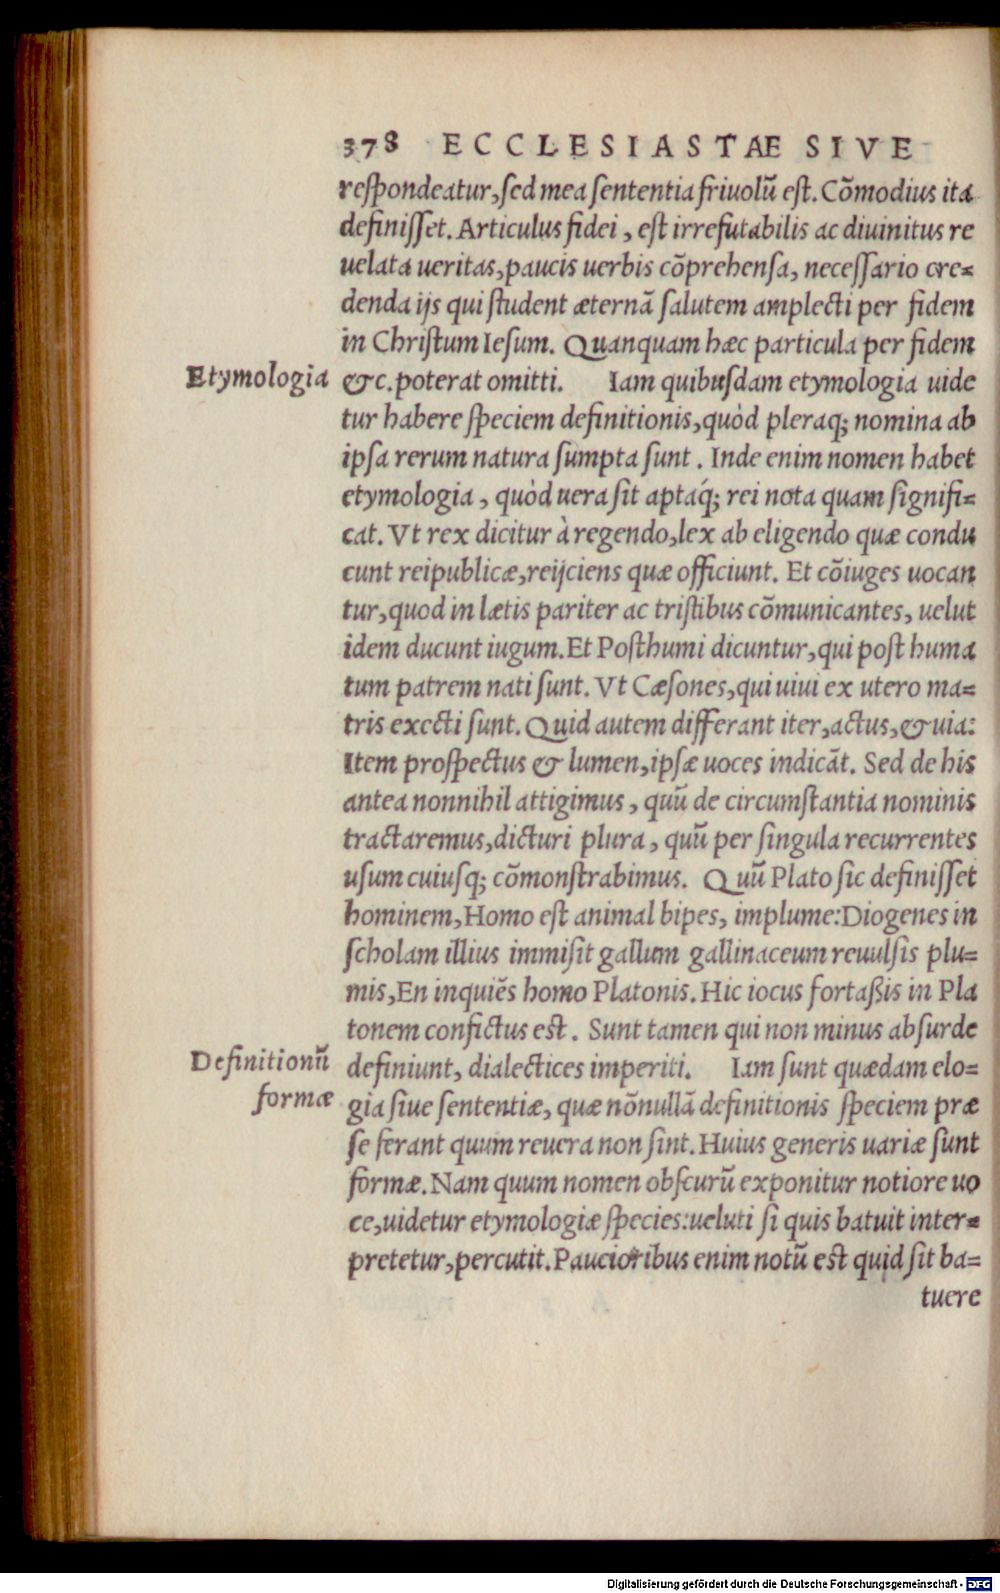 378 ECCLESIASTAE SIVE
respondeatur, sed mea sententia friuolũ est. Cõmodius ita
definisset. Articulus fidei, est irrefutabilis ac diuinitus re
uelata ueritas, paucis uerbis cõprehensa, necessario cre=
denda ijs qui student æternã salutem amplecti per fidem
in Christum Iesum. Quanquam hæc particula per fidem
Etymologia
&c. poterat omitti. Iam quibusdam etymologia uide
tur habere speciem definitionis, quòd pleraq; nomina ab
ipsa rerum natura sumpta sunt. Inde enim nomen habet
etymologia, quòd uera sit aptáq; rei nota quam signifi=
cat. Vt rex dicitur à regendo, lex ab eligendo quæ condu
cunt reipublicæ, reijciens quæ officiunt. Et cõiuges uocan
tur, quod in lætis pariter ac tristibus cõmunicantes, uelut
idem ducunt iugum. Et Posthumi dicuntur, qui post huma
tum patrem nati sunt. Vt Cæsones, qui uiui ex utero ma=
tris execti sunt. Quid autem differant iter, actus, & uia:
Item prospectus & lumen, ipsæ uoces indicãt. Sed de his
antea nonnihil attigimus, quũ de circumstantia nominis
tractaremus, dicturi plura, quũ per singula recurrentes
usum cuiusq; cõmonstrabimus. Quũ Plato sic definisset
hominem, Homo est animal bipes, implume: Diogenes in
scholam illius immisit gallum gallinaceum reuulsis plu=
mis, En inquiẽs homo Platonis. Hic iocus fortaßis in Pla
tonem confictus est. Sunt tamen qui non minus absurde
Definitionũ
formæ
definiunt, dialectices imperiti. Iam sunt quædam elo=
gia siue sententiæ, quæ nõnullã definitionis speciem præ
se ferant quum reuera non sint. Huius generis uariæ sunt
formæ. Nam quum nomen obscurũ exponitur notiore uo
ce, uidetur etymologiæ species: ueluti si quis batuit inter=
pretetur, percutit. Paucioribus enim notũ est quid sit ba=
tuere
Digitalisierung gefördert durch die Deutsche Forschungsgemeinschaft - DFG